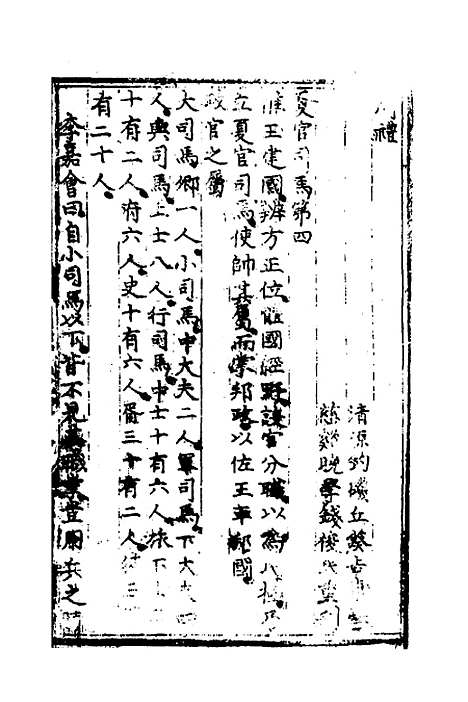 禮
清源釣磯丘葵
慈谿晚學錢
夏官司馬第四
惟王建國辨方正位體國經野設官分職以為民極乃
立夏官司馬使帥其屬而掌邦政以佐王平邦國
政官之屬
大司馬卿一人小司馬中大夫二人軍司馬下大夫四
人輿司馬上士八人行司馬中士十有六人旅下士
十有二人府六人史十有六人胥三十有二人徒三
有二十人
李嘉會曰自小司馬以下皆不見其職業豈用兵之時